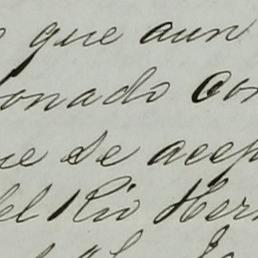 que aun
onado con
ue se acep
del Rio Her